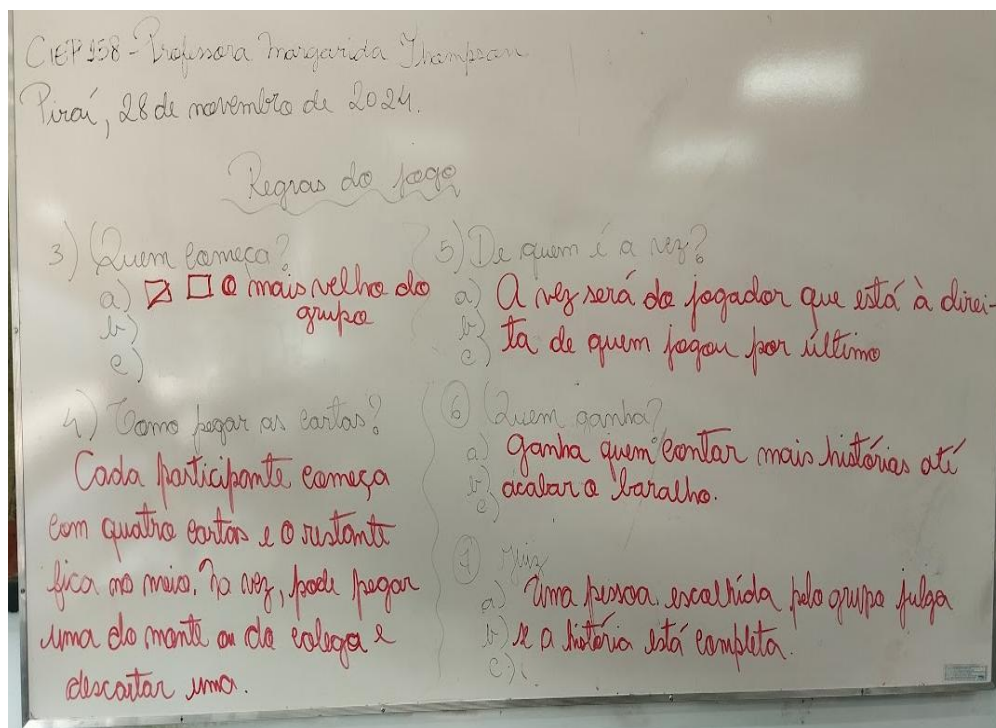 CIEP 158 - Professora Margarida Thompson
Piraí, 28 de novembro de 2024.
Regras do jogo
3) Quem começa?
a) O mais velho do
grupo
b)
c)
4) Como pegar as cartas?
Cada participante começa
com quatro cartas e o restante
fica no meio. Na vez, pode pegar
uma do monte ou do colega e
descartar uma.
5) De quem é a vez?
a) A vez será do jogador que está à direi-
b) ta de quem jogou por último
c)
6 Quem ganha?
a) Ganha quem contar mais histórias até
b) acabar o baralho.
c)
7 Juiz
a) Uma pessoa escolhida pelo grupo julga
b) se a história está completa.
c)